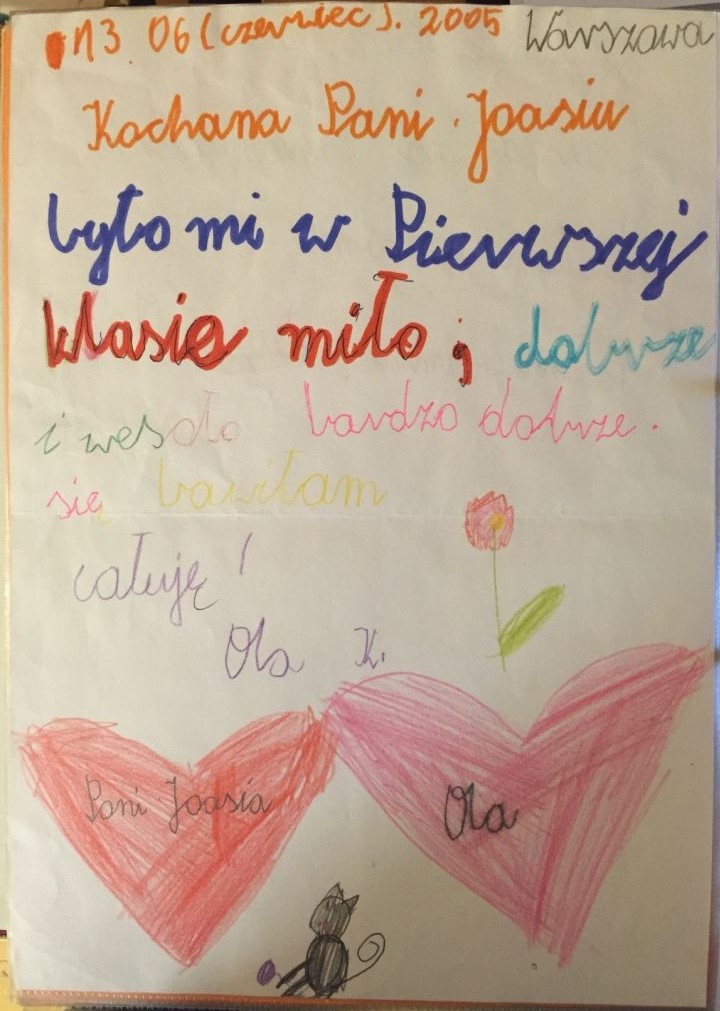 13 06 (czerwiec). 2005 Warszawa
Kochana Pani Joasiu
było mi w Pierwszej
klasie miło, dobrze
i wesoło bardzo dobrze.
się bawiłam
całuję!
Ola K.
Pani Joasia
Ola